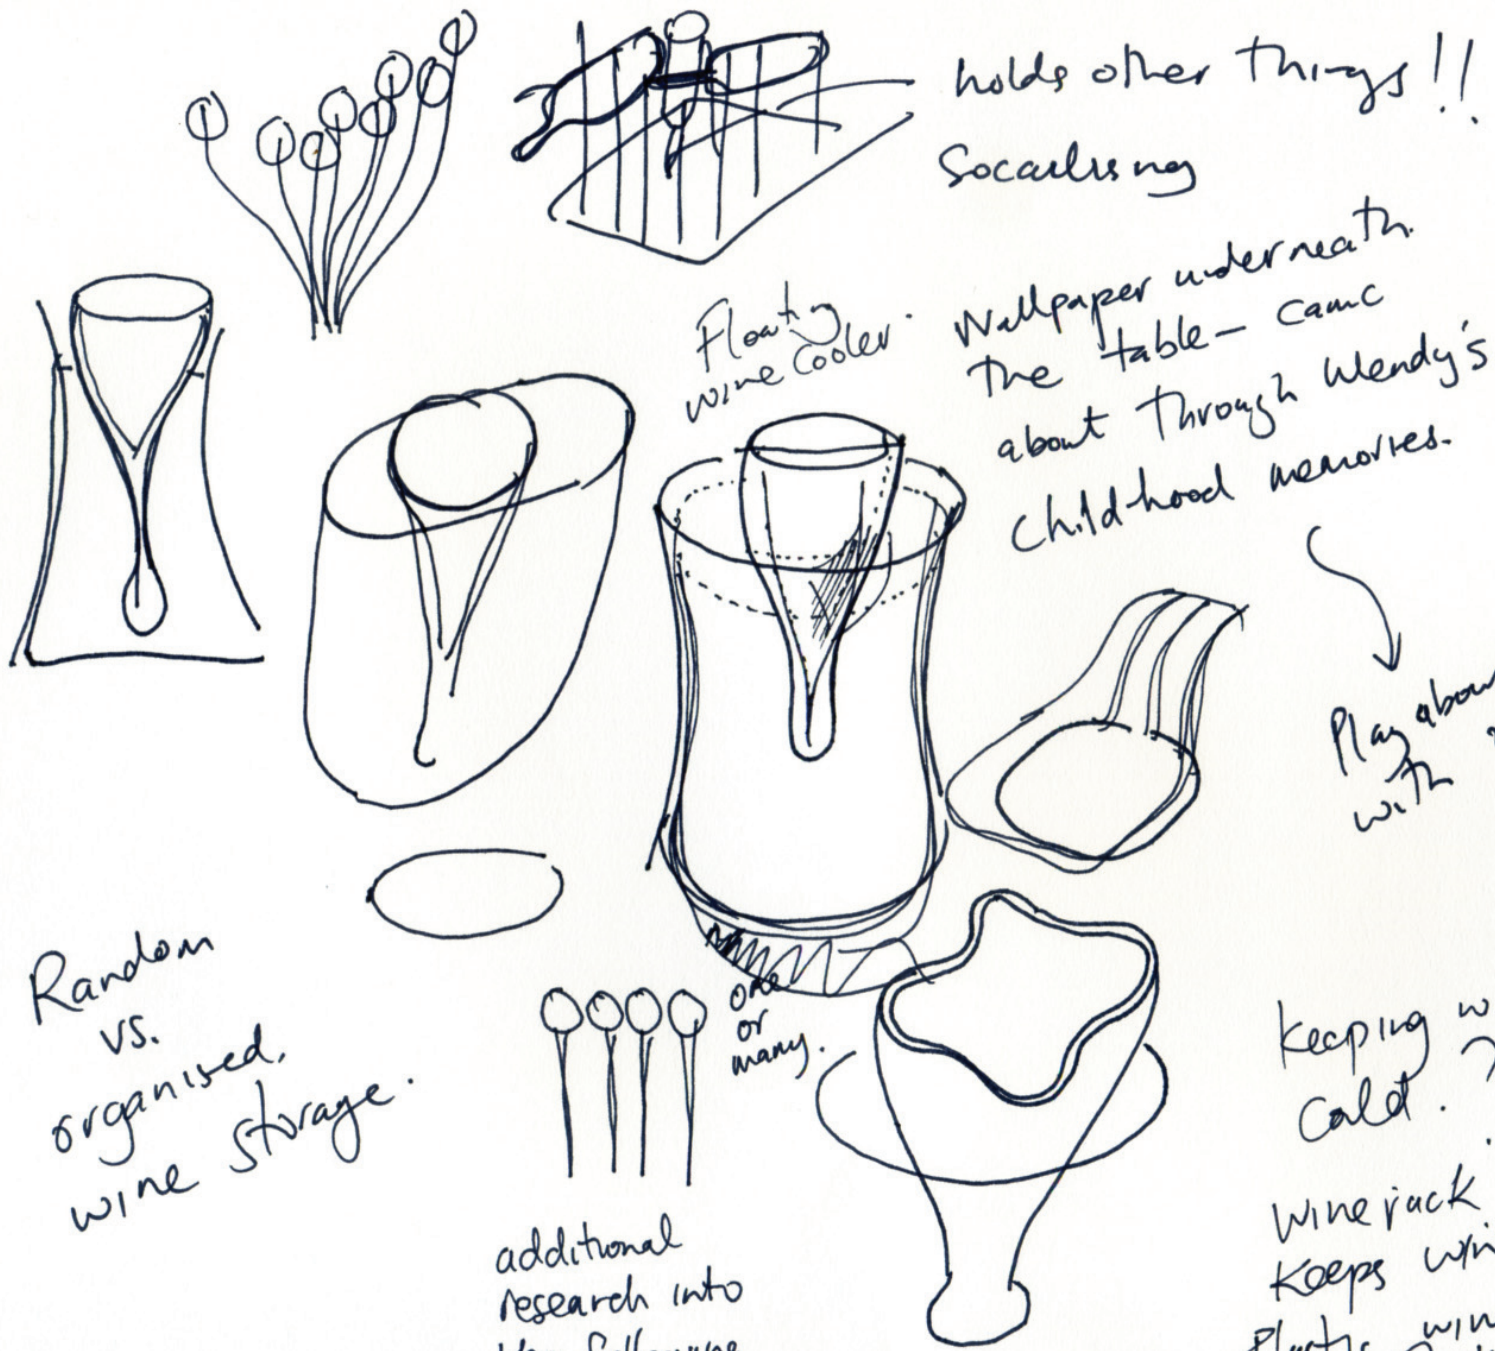 holds other things!!
Socailising
Floating
wine cooler.
Wallpaper underneath
the table – came
about through Wendy's
Childhood memories.
Play abou
with
Random
vs.
organised.
wine storage.
one
or
many.
Keeping w
Cold. ?
additional
research into
Wine rack
Keeps win
Plastic win